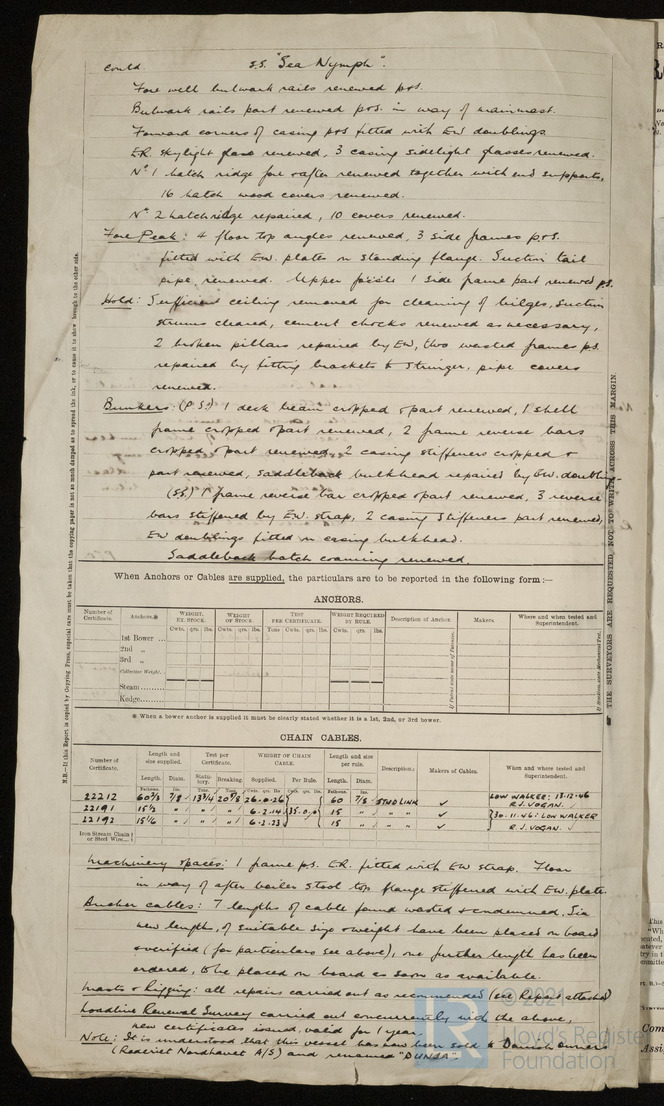 contd S.S. "Sea Nymph".
Fore well bulwark rails renewed p&s.
Bulwark rails part renewed p&s. in way of mainmast.
Forward corners of casing p&s fitted with EW doublings
ER. skylight glass renewed, 3 casing sidelight glasses renewed.
No 1 hatch ridge fore & after renewed together with end supports,
16 hatch wood covers renewed.
No 2 hatch ridge repaired, 10 covers renewed.
Fore Peak: 4 floor top angles renewed, 3 side frames p&s.
fitted with EW. plates on standing flange. Suction tail
pipe renewed. Upper focsle 1 side frame part renewed ps.
Hold: Sufficient ceiling removed for cleaning of bilges, suction
strums cleared, cement chocks renewed as necessary,
2 broken pillars repaired by EW, two wasted frames ps.
repaired by fitting brackets to stringer. pipe covers
renewed.
Bunkers (P.S.) 1 deck beam cropped & part renewed, 1 shell
frame cropped & part renewed, 2 frame reverse bars
cropped & part renewed, 2 casing stiffeners cropped &
part renewed, saddleback bulkhead repaired by EW. doubling
(S.S.) 1 frame reverse bar cropped & part renewed, 3 reverse
bars stiffened by EW. strap, 2 casing stiffeners part renewed,
EW doublings fitted on casing bulkhead.
Saddleback hatch coaming renewed.
When Anchors or Cables are supplied, the particulars are to be reported in the following form:—
ANCHORS.
Number of Certificate. Anchors.* WEIGHT. EX. STOCK. WEIGHT OF STOCK. TEST PER CERTIFICATE. WEIGHT REQUIRED BY RULE. Description of Anchor. Makers. Where and when tested and Superintendent.
Cwts. qrs. lbs. Cwts. qrs. lbs. Tons Cwts. qrs. lbs. Cwts. qrs. lbs.
1st Bower ...
2nd „
3rd „
Collective Weight.
Steam.........
Kedge.........
If Patent state name of Patentee.
If Stockless, state Mechanical Test.
* When a bower anchor is supplied it must be clearly stated whether it is a 1st, 2nd, or 3rd bower.
CHAIN CABLES.
Number of Certificate. Length and size supplied. Test per Certificate. WEIGHT OF CHAIN CABLE. Length and size per rule. Description. Makers of Cables. When and where tested and Superintendent.
Length. Diam. Statutory. Breaking. Supplied. Per Rule. Length. Diam.
Fathoms. Ins. Tons. Tons. Cwts. qrs. lbs. Cwts. qrs. lbs. Fathoms. Ins.
22212 60 1/3 7/8 13 3/4 20 5/8 26.0.26 60 7/8 STUD LINK ✓ LOW WALKER: 13-12-46 R.J. VOGAN.
22191 15 1/2 " " " 6.2.14 35.0.0 15 " " " ✓ 30.11.46: LOW WALKER
22192 15 1/6 " " " 6.2.23 15 " " " ✓ R.J. VOGAN.
Iron Stream Chain or Steel Wire...
Machinery spaces: 1 frame ps. ER. fitted with EW strap. Floor
in way of after boiler stool top flange stiffened with EW. plate.
Anchor cables: 7 lengths of cable found wasted & condemned, Six
new lengths, of suitable size & weight have been placed on board
& verified (for particulars see above), one further length has been
ordered, to be placed on board as soon as available.
Masts & Rigging: all repairs carried out as recommended (see Report attached)
Loadline Renewal Survey carried out concurrently with the above,
new certificates issued, valid for 1 year.
Note: It is understood that this vessel has now been sold to Danish owners
(Rederiet Nordhavet A/S) and renamed "DUNJA".
N.B.—If this Report is copied by Copying Press, especial care must be taken that the copying paper is not so much damped as to spread the ink, or to cause it to show through to the other side.
THE SURVEYORS ARE REQUESTED, NOT TO WRITE ACROSS THIS MARGIN.
© 2021
Lloyd's Register
Foundation